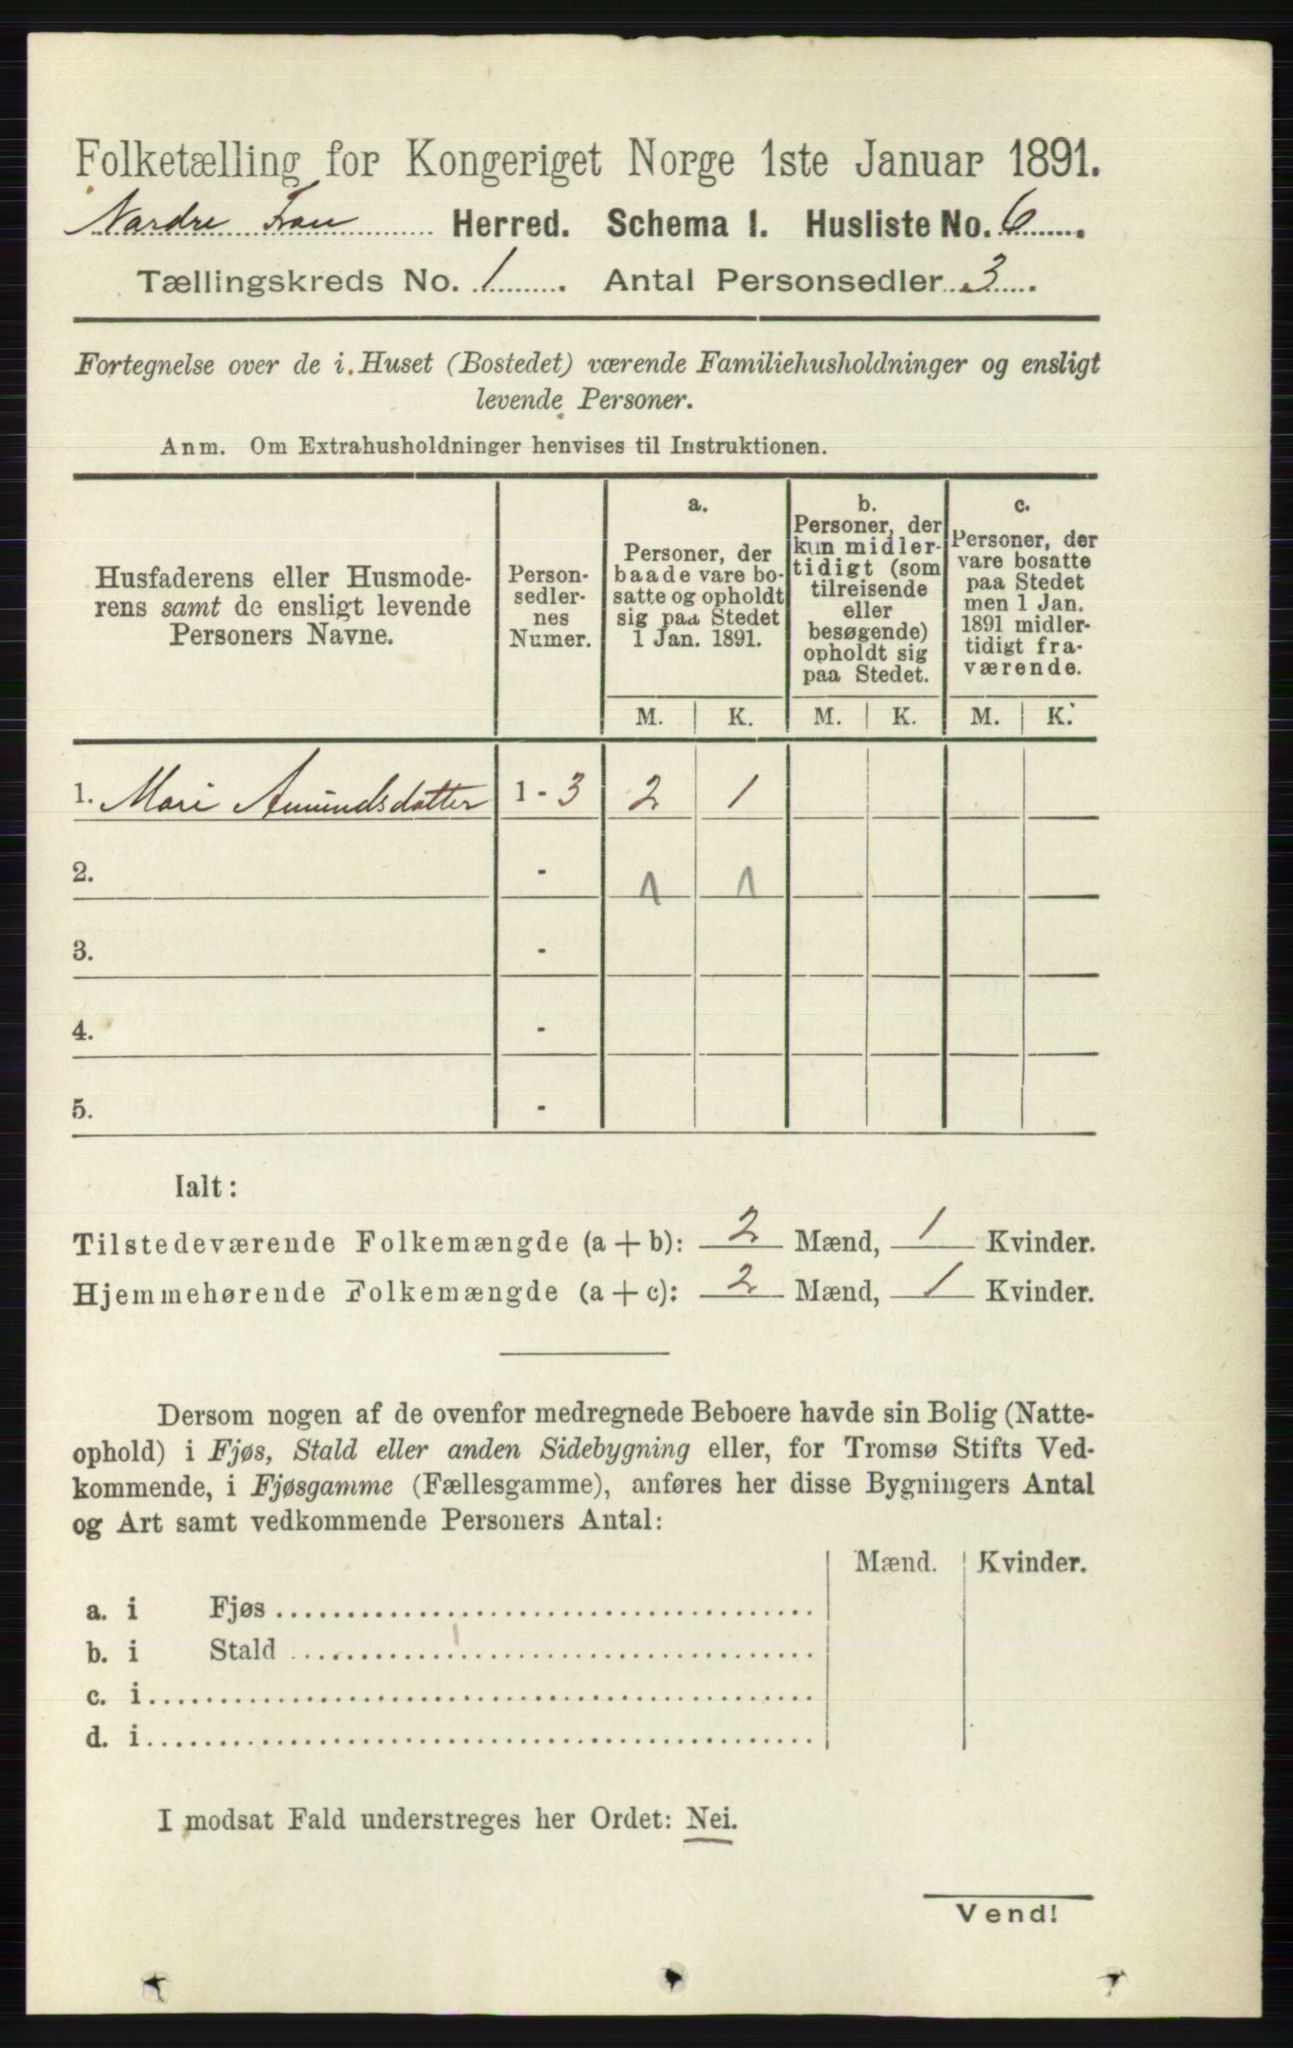 Folketælling for Kongeriget Norge 1ste Januar 1891.
Nordre Fron Herred. Schema I. Husliste No. 6
Tællingskreds No. 1. Antal Personsedler 3.
Fortegnelse over de i Huset (Bostedet) værende Familiehusholdninger og ensligt
levende Personer.
Anm. Om Extrahusholdninger henvises til Instruktionen.
Husfaderens eller Husmode-
rens samt de ensligt levende
Personers Navne.
Person-
sedler-
nes
Numer.
a.
Personer, der
baade vare bo-
satte og opholdt
sig paa Stedet
1 Jan. 1891.
b.
Personer, der
kun midler-
tidigt (som
tilreisende
eller
besøgende)
opholdt sig
paa Stedet.
c.
Personer, der
vare bosatte
paa Stedet
men 1 Jan.
1891 midler-
tidigt fra-
værende.
M. K. M. K. M. K.
1. Mari Amundsdatter 1 - 3 2 1
2. - 1 1
3. -
4. -
5. -
Ialt:
Tilstedeværende Folkemængde (a + b): 2 Mænd, 1 Kvinder.
Hjemmehørende Folkemængde (a + c): 2 Mænd, 1 Kvinder.
Dersom nogen af de ovenfor medregnede Beboere havde sin Bolig (Natte-
ophold) i Fjøs, Stald eller anden Sidebygning eller, for Tromsø Stifts Ved-
kommende, i Fjøsgamme (Fællesgamme), anføres her disse Bygningers Antal
og Art samt vedkommende Personers Antal:
Mænd. Kvinder.
a. i Fjøs
b. i Stald
c. i
d. i
I modsat Fald understreges her Ordet: Nei.
Vend!